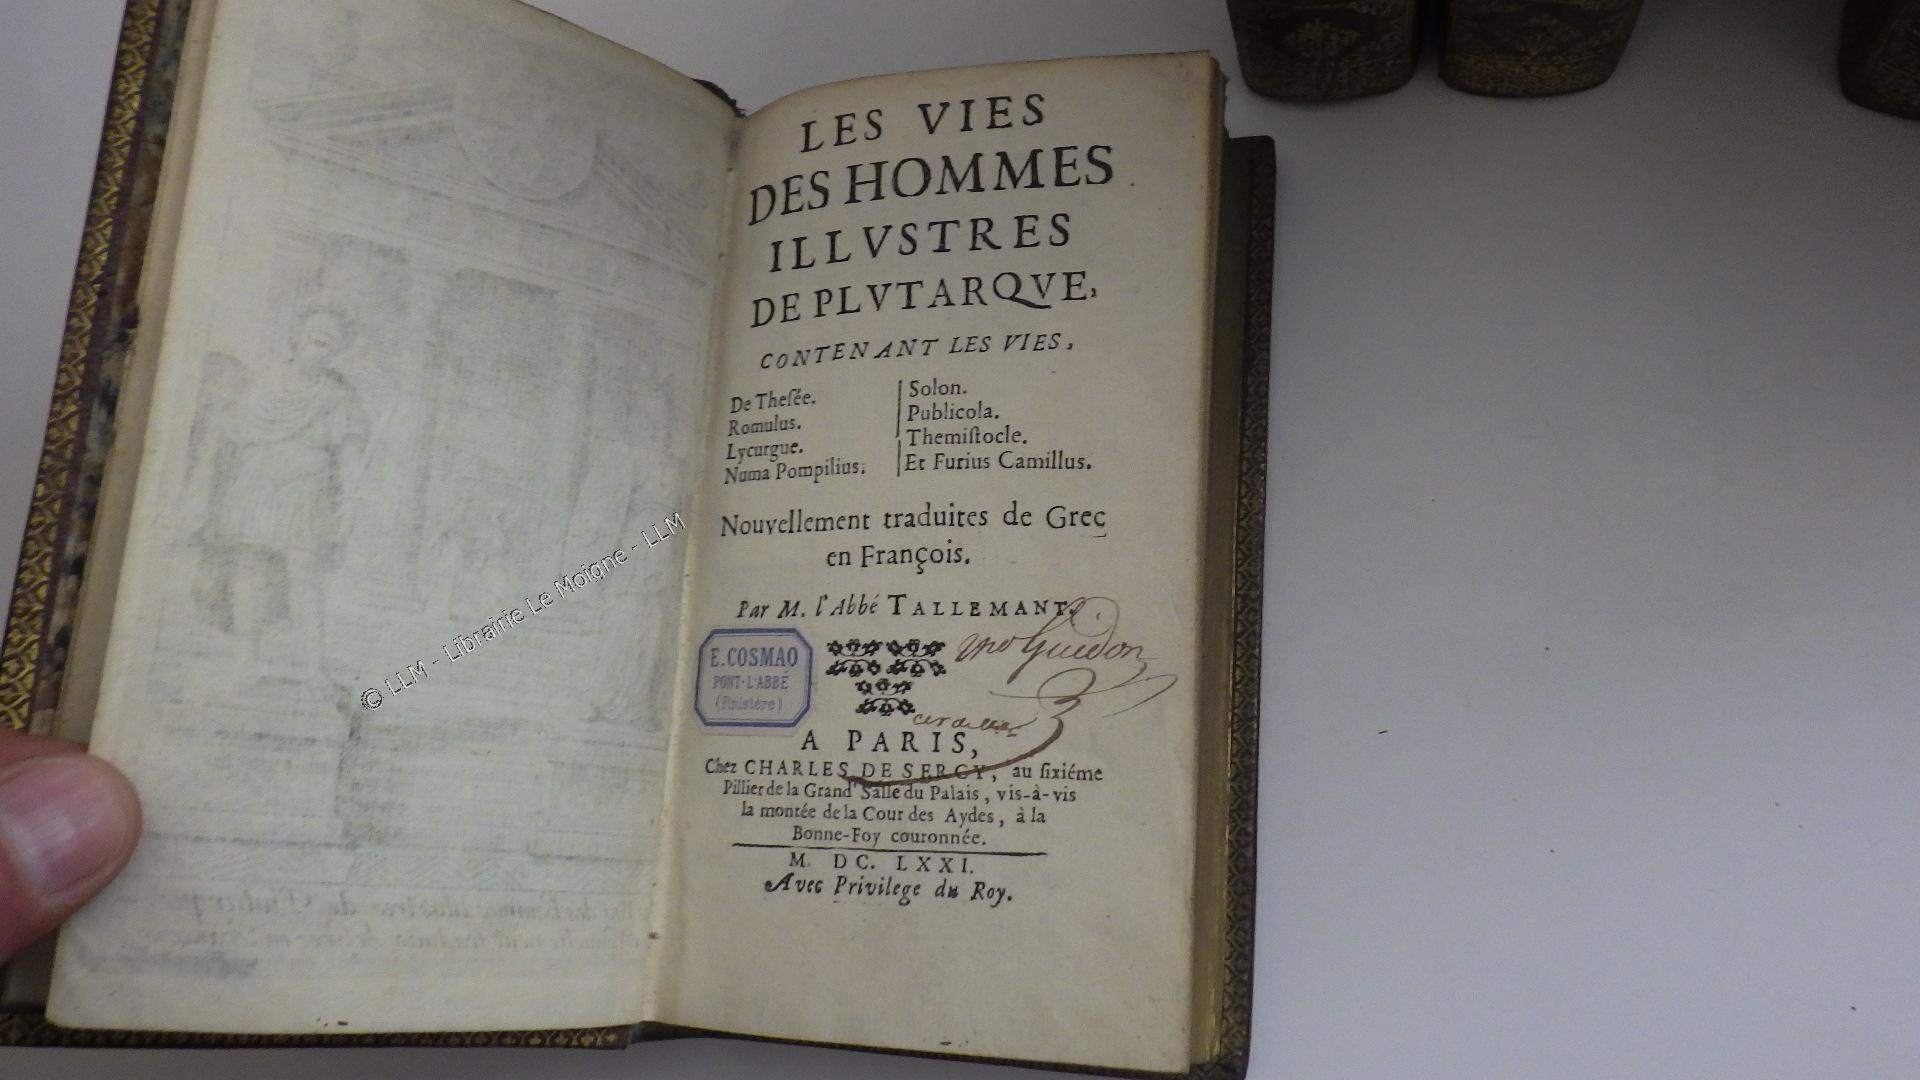 LES VIES
DES HOMMES
ILLVSTRES
DE PLVTARQVE,
CONTENANT LES VIES,
De Theſée.
Romulus.
Lycurgue.
Numa Pompilius.
Solon.
Publicola.
Themiſtocle.
Et Furius Camillus.
Nouvellement traduites de Grec
en François.
Par M. l'Abbé TALLEMANT.
E. COSMAO
PONT-L'ABBÉ
(Finistère)
Guidon
A PARIS,
Chez CHARLES DE SERCY, au ſixiéme
Pillier de la Grand' Salle du Palais, vis-à-vis
la montée de la Cour des Aydes, à la
Bonne-Foy couronnée.
M. DC. LXXI.
Avec Privilege du Roy.
© LLM - Librairie Le Moigne - LLM